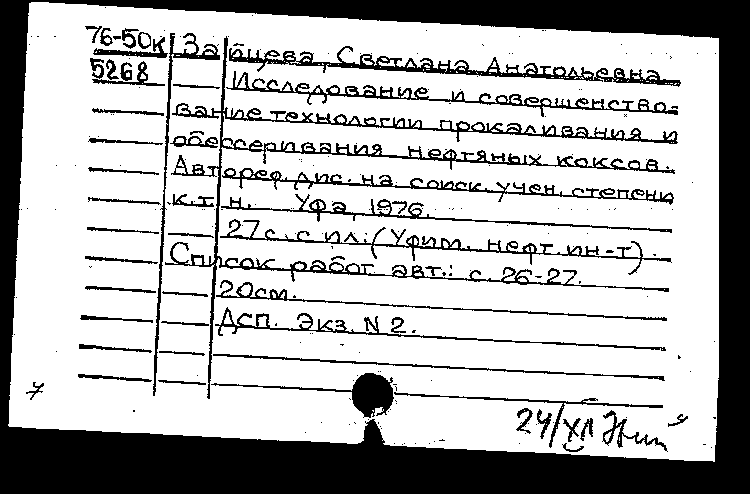 76-50к Зайцева, Светлана Анатольевна
5268 Исследование и совершенство-
вание технологии прокаливания и
обессеривания нефтяных коксов.
Автореф. дис. на соиск. учен. степени
к.т.н. Уфа, 1976.
27с. с ил. (Уфим. нефт. ин-т)
Список работ авт.: с. 26-27.
20см.
Дсп. Экз. N 2.
24/XII